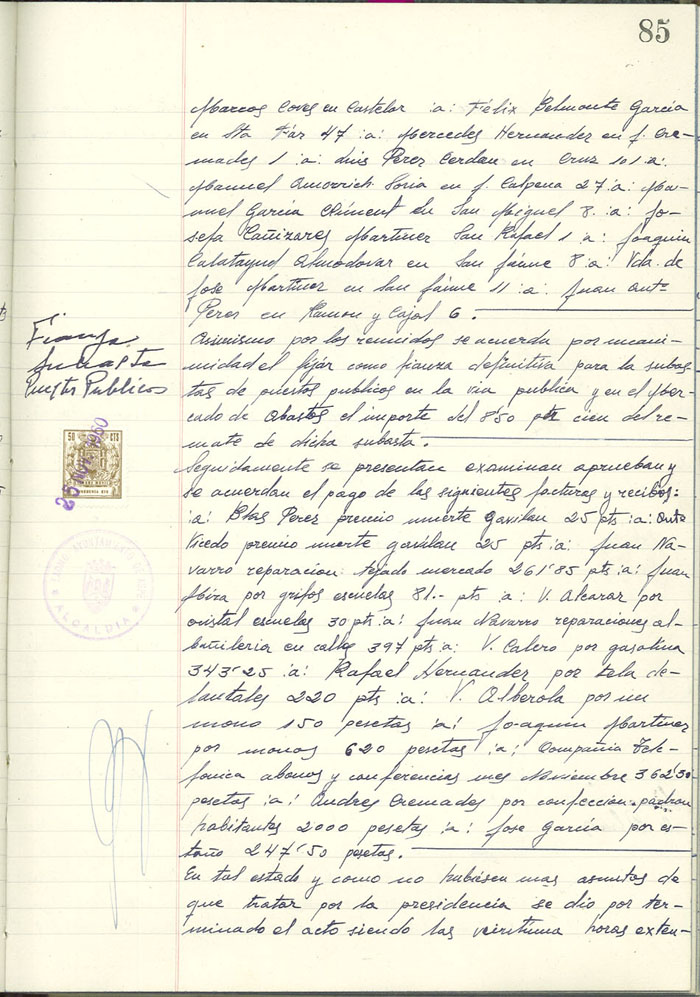 85
Marcos Coves en Castelar :a: Félix Belmonte García
en Sta Faz 47 :a: Mercedes Hernandez en f. Cre-
mades 1 :a: Luis Perez Cerdan en Cruz 101 a:
Manuel Amorrich Soria en f. Calpena 27 :a: Ma-
nuel García Climent en San Miguel 8. :a: Jo-
sefa Cañizares Martinez San Rafael 1 a: Joaquin
Calatayud Almodovar en San Jaime 8 :a: Vda. de
Jose Martinez en San Jaime 11 :a. Juan Antº
Perez en Ramon y Cajal 6.
Fianza
Subasta
Puestos Publicos
Asimismo por los reunidos se acuerda por unani-
midad el fijar como fianza definitiva para la subas-
tas de puestos publicos en la via publica y en el Mer-
cado de Abastos el importe del 8'50 por cien del re-
mate de dicha subasta.
50 CTS
25 NOV 1960
Seguidamente se presentan examinan aprueban y
se acuerdan el pago de las siguientes facturas y recibos:
:a: Blas Perez premio muerte gavilan 25 pts :a: Antº
Vicedo premio muerte gavilan 25 pts :a: Juan Na-
varro reparacion tejado mercado 261'85 pts :a: Juan
Mira por grifos escuelas 81.- pts :a: V. Alcaraz por
cristal escuelas 30 pts :a: Juan Navarro reparaciones al-
bañileria en calles 397 pts a: V. Calero por gasolina
343'25 :a: Rafael Hernandez por tela de-
lantales 220 pts :a: V. Alberola por un
mono 150 pesetas :a: Joaquin Martinez
por monos 620 pesetas :a: Compañia Tele-
fonica abonos y conferencias mes Noviembre 362'50
pesetas :a: Andres Cremades por confeccion padron
habitantes 2000 pesetas :a: Jose García por es-
taño 247'50 pesetas.
ALCALDIA
En tal estado y como no hubiesen mas asuntos de
que tratar por la presidencia se dio por ter-
minado el acto siendo las veintiuna horas exten-